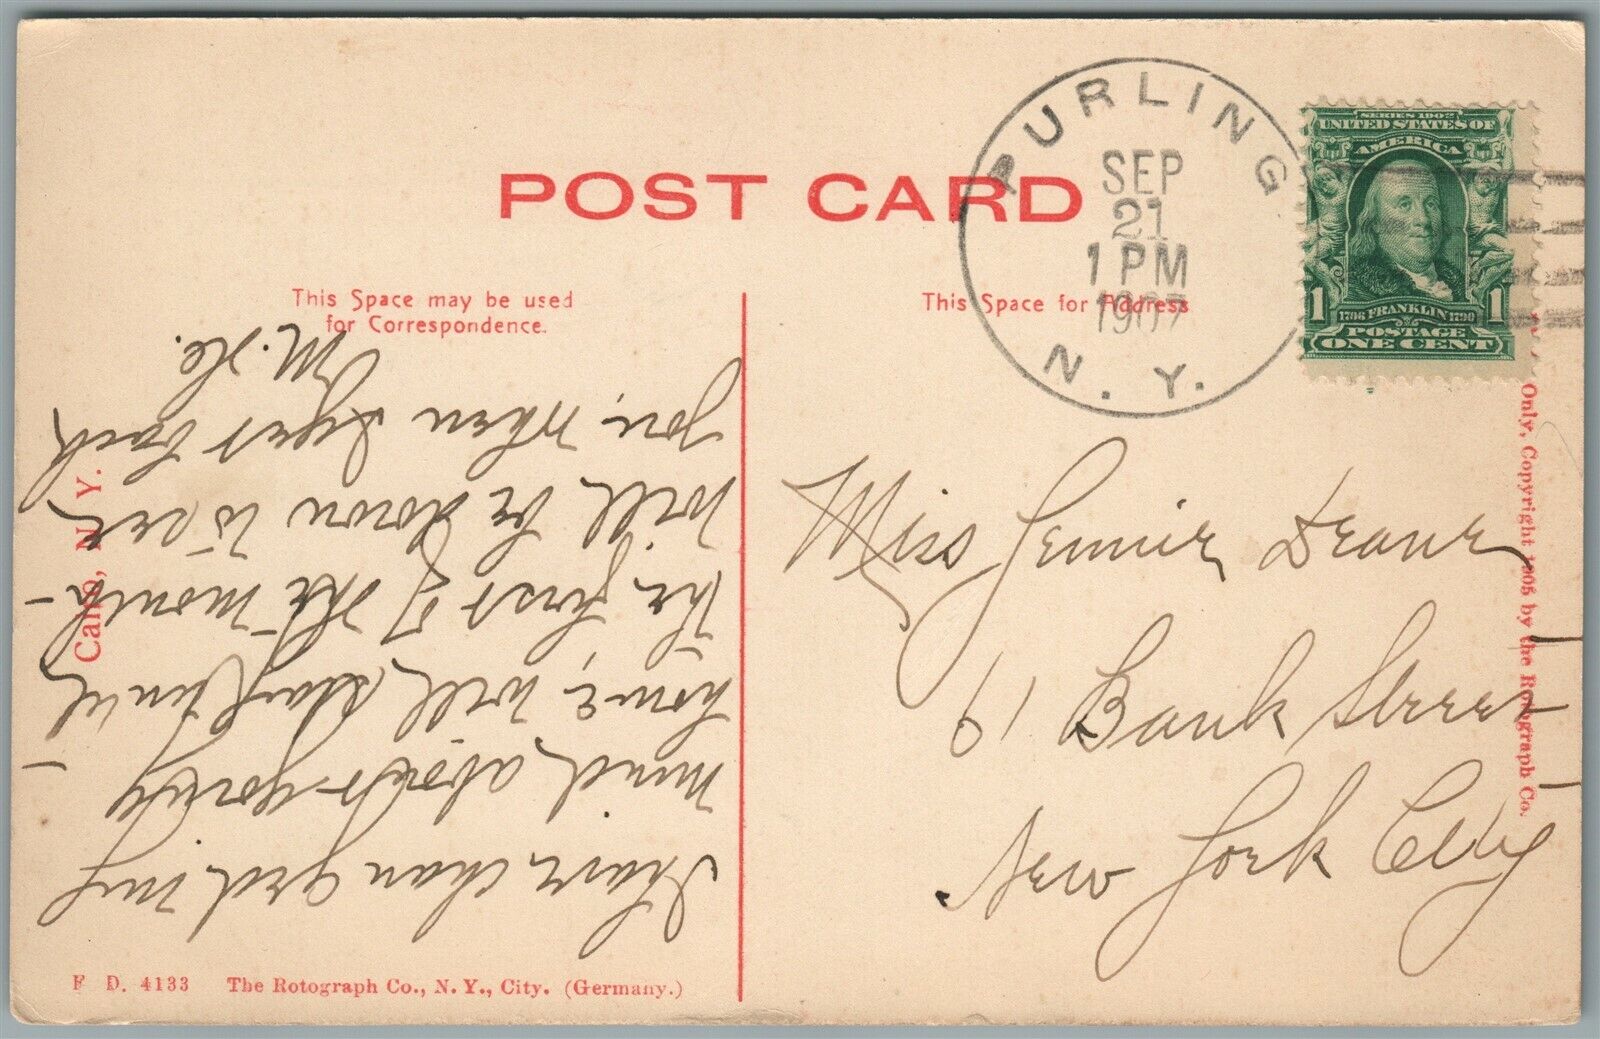 POST CARD
This Space may be used
for Correspondence.
This Space for Address
PURLING
SEP
21
1 PM
1907
N. Y.
SERIES 1902
UNITED STATES OF
AMERICA
1 1706 FRANKLIN 1790 1
POSTAGE
ONE CENT
I have changed my
mind about going
home, will stay until
the first of the month -
will be down to see
you, when I get back
Miss Jennie Deane
61 Bank Street
New York City
Cairo, N. Y.
Only, Copyright 1905 by the Rotograph Co.
F D. 4133 The Rotograph Co., N. Y., City. (Germany.)